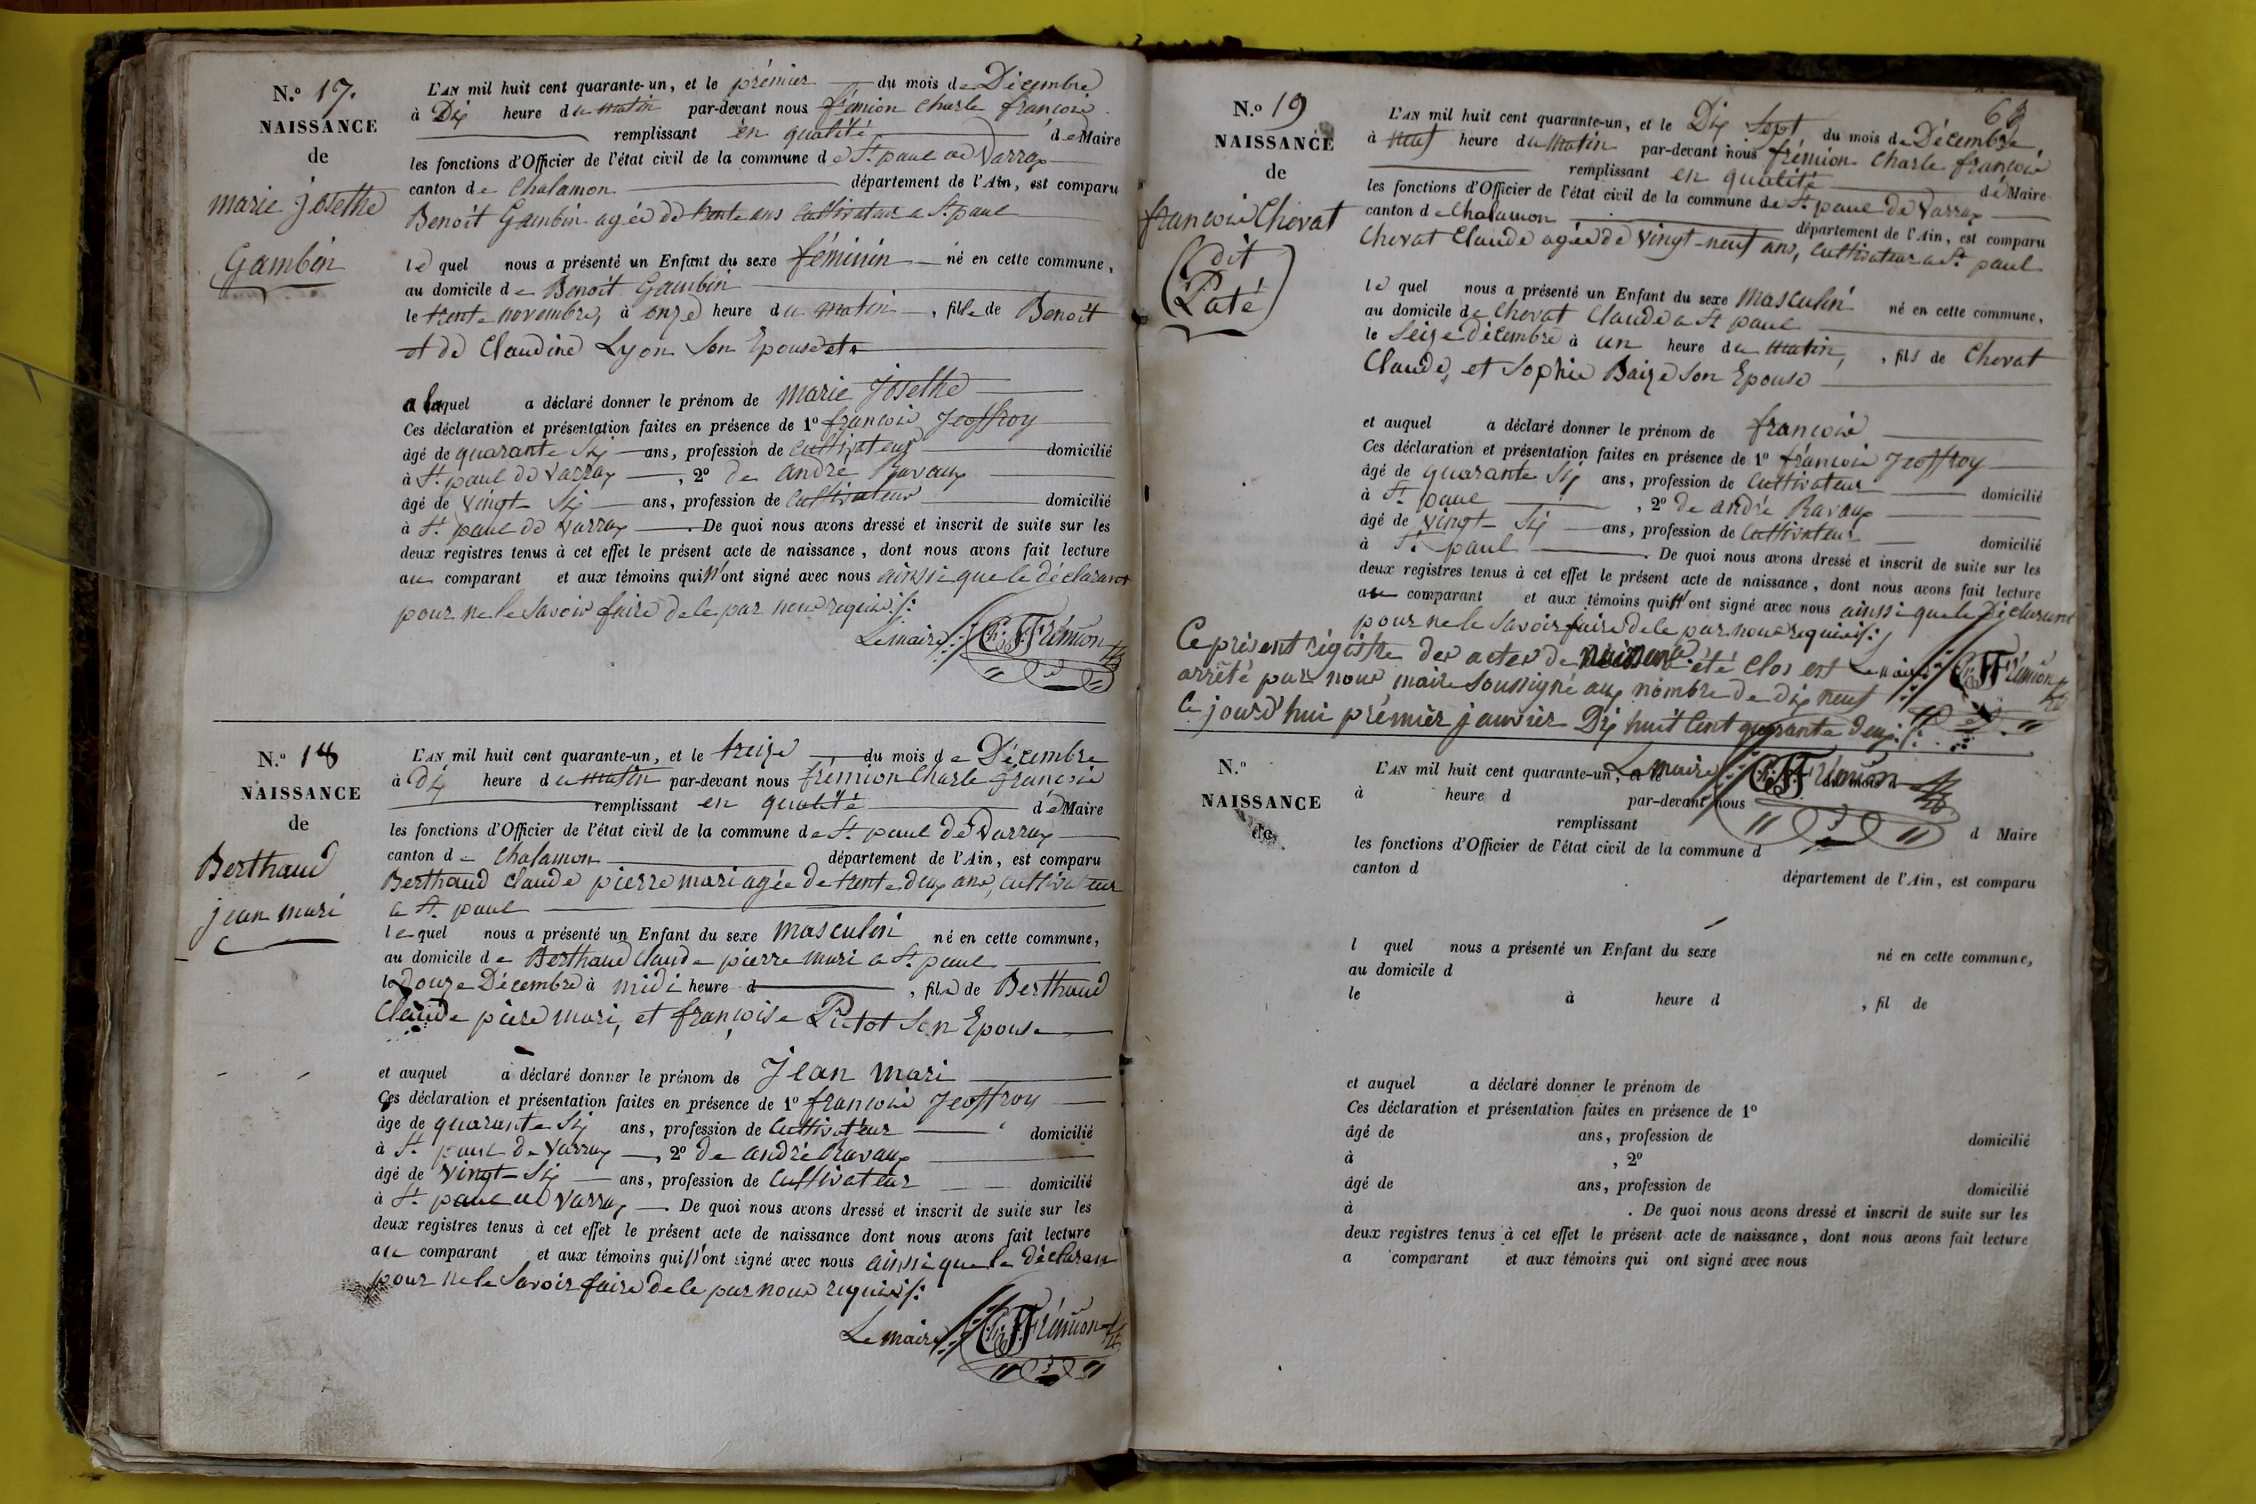 N.º 17.
NAISSANCE
de
marie josethe
Gambin
L'AN mil huit cent quarante-un, et le prémier du mois de Décembre
à Dix heure du matin par-devant nous frémion Charle françois
remplissant en qualité de Maire
les fonctions d'Officier de l'état civil de la commune de St. paul de Varrax
canton de Chalamon département de l'Ain, est comparu
Benoit Gambin agée de trente ans Cultivateur a St. paul
le quel nous a présenté un Enfant du sexe féminin né en cette commune,
au domicile de Benoit Gambin
le trente novembre, à onze heure du matin, fille de Benoit
et de Claudine Lyon Son Epouse et
a laquel a déclaré donner le prénom de marie Josethe
Ces déclaration et présentation faites en présence de 1º françois Jeoffroy
âgé de quarante Six ans, profession de Cultivateur domicilié
à St. paul de Varrax, 2º de andré Ravaux
âgé de vingt-Six ans, profession de Cultivateur domicilié
à St. paul de Varrax. De quoi nous avons dressé et inscrit de suite sur les
deux registres tenus à cet effet le présent acte de naissance, dont nous avons fait lecture
au comparant et aux témoins qui n'ont signé avec nous ainssi que le déclarant
pour ne le Savoir faire de le par nous requis
Le maire Ch. F. Frémion
N.º 18
NAISSANCE
de
Berthaud
jean mari
L'AN mil huit cent quarante-un, et le treize du mois de Décembre
à Dix heure du matin par-devant nous frémion Charle françois
remplissant en qualité de Maire
les fonctions d'Officier de l'état civil de la commune de St. paul de Varrax
canton de Chalamon département de l'Ain, est comparu
Berthaud Claude pierre mari agée de trente deux ans, Cultivateur
a St. paul
le quel nous a présenté un Enfant du sexe masculin né en cette commune,
au domicile de Berthaud Claude pierre mari a St. paul
le Douze Décembre à midi heure d, fils de Berthaud
Claude piere mari, et françoise Pictot Son Epouse
et auquel a déclaré donner le prénom de Jean mari
Ces déclaration et présentation faites en présence de 1º françois Jeoffroy
âge de quarante Six ans, profession de Cultivateur domicilié
à St. paul de Varrax, 2º de andré Ravaux
âgé de vingt-Six ans, profession de Cultivateur domicilié
à St. paul de Varrax. De quoi nous avons dressé et inscrit de suite sur les
deux registres tenus à cet effet le présent acte de naissance dont nous avons fait lecture
au comparant et aux témoins qui n'ont signé avec nous ainssi que le déclaran
pour ne le Savoir faire de le par nous requis
Le maire Ch. F. Frémion
63
N.º 19
NAISSANCE
de
françois Chevat
(dit
Paté)
L'AN mil huit cent quarante-un, et le Dix Sept du mois de Décembre
à neuf heure du matin par-devant nous frémion Charle françois
remplissant en qualité de Maire
les fonctions d'Officier de l'état civil de la commune de St. paul de Varrax
canton de Chalamon département de l'Ain, est comparu
Chevat Claude agée de vingt-neuf ans, Cultivateur a St. paul
le quel nous a présenté un Enfant du sexe masculin né en cette commune,
au domicile de Chevat Claude a St. paul
le Seize décembre à un heure du matin, fils de Chevat
Claude, et Sophie Baize Son Epouse
et auquel a déclaré donner le prénom de françois
Ces déclaration et présentation faites en présence de 1º françois Jeoffroy
âgé de quarante Six ans, profession de Cultivateur domicilié
à St. paul, 2º de andré Ravaux
âgé de vingt-Six ans, profession de Cultivateur domicilié
à St. paul. De quoi nous avons dressé et inscrit de suite sur les
deux registres tenus à cet effet le présent acte de naissance, dont nous avons fait lecture
au comparant et aux témoins qui n'ont signé avec nous ainssi que le Déclarant
pour ne le Savoir faire de le par nous requis
Le maire Ch. F. Frémion
Ce présent régistre des actes de naissance été clos est
arrêté par nous maire Soussigné aux nombre de dix neuf
Ce jourd'hui prémier janvier Dix huit Cent quarante deux
Le maire Ch. F. Frémion
N.º
NAISSANCE
de
L'AN mil huit cent quarante-un, et le du mois d
à heure d par-devant nous
remplissant d Maire
les fonctions d'Officier de l'état civil de la commune d
canton d département de l'Ain, est comparu
l quel nous a présenté un Enfant du sexe né en cette commune,
au domicile d
le à heure d, fil de
et auquel a déclaré donner le prénom de
Ces déclaration et présentation faites en présence de 1º
âgé de ans, profession de domicilié
à , 2º
âgé de ans, profession de domicilié
à . De quoi nous avons dressé et inscrit de suite sur les
deux registres tenus à cet effet le présent acte de naissance, dont nous avons fait lecture
a comparant et aux témoins qui ont signé avec nous